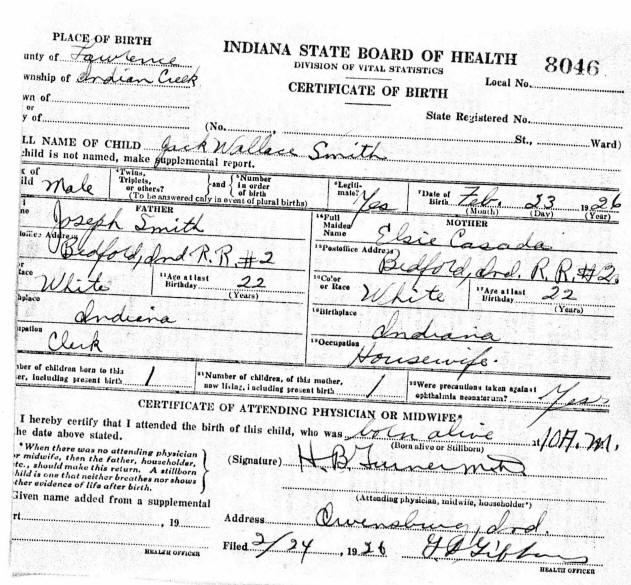 PLACE OF BIRTH
INDIANA STATE BOARD OF HEALTH 8046
unty of Lawrence
DIVISION OF VITAL STATISTICS
wnship of Indian Creek
Local No.
CERTIFICATE OF BIRTH
wn of
or
State Registered No.
y of
(No. St., Ward)
LL NAME OF CHILD Jack Wallace Smith
child is not named, make supplemental report.
x of
ild Male
Twins, Triplets, or others? and Number in order of birth
(To be answered only in event of plural births)
Legiti-
mate? Yes
Date of Birth Feb. 23 1926
(Month) (Day) (Year)
FATHER
me Joseph Smith
MOTHER
Full Maiden Name Elsie Casada
office Address
Bedford, Ind R.R. #2
Postoffice Address
Bedford, Ind. R.R. #2
or
ace White
Age at last Birthday 22
(Years)
Color or Race White
Age at last Birthday 22
(Years)
hplace
Indiana
Birthplace
Indiana
upation
Clerk
Occupation
Housewife.
ber of children born to this
er, including present birth 1
Number of children, of this mother,
now living, including present birth 1
Were precautions taken against
ophthalmia neonatorum? Yes
CERTIFICATE OF ATTENDING PHYSICIAN OR MIDWIFE*
I hereby certify that I attended the birth of this child, who was born alive at 10 A. M.
(Born alive or Stillborn)
he date above stated.
*When there was no attending physician
r midwife, then the father, householder,
tc., should make this return. A stillborn
hild is one that neither breathes nor shows
ther evidence of life after birth.
(Signature) H. B. Turner MD
(Attending physician, midwife, householder*)
Given name added from a supplemental
rt , 19
Address Owensburg, Ind.
Filed 2/24, 1926
HEALTH OFFICER
HEALTH OFFICER